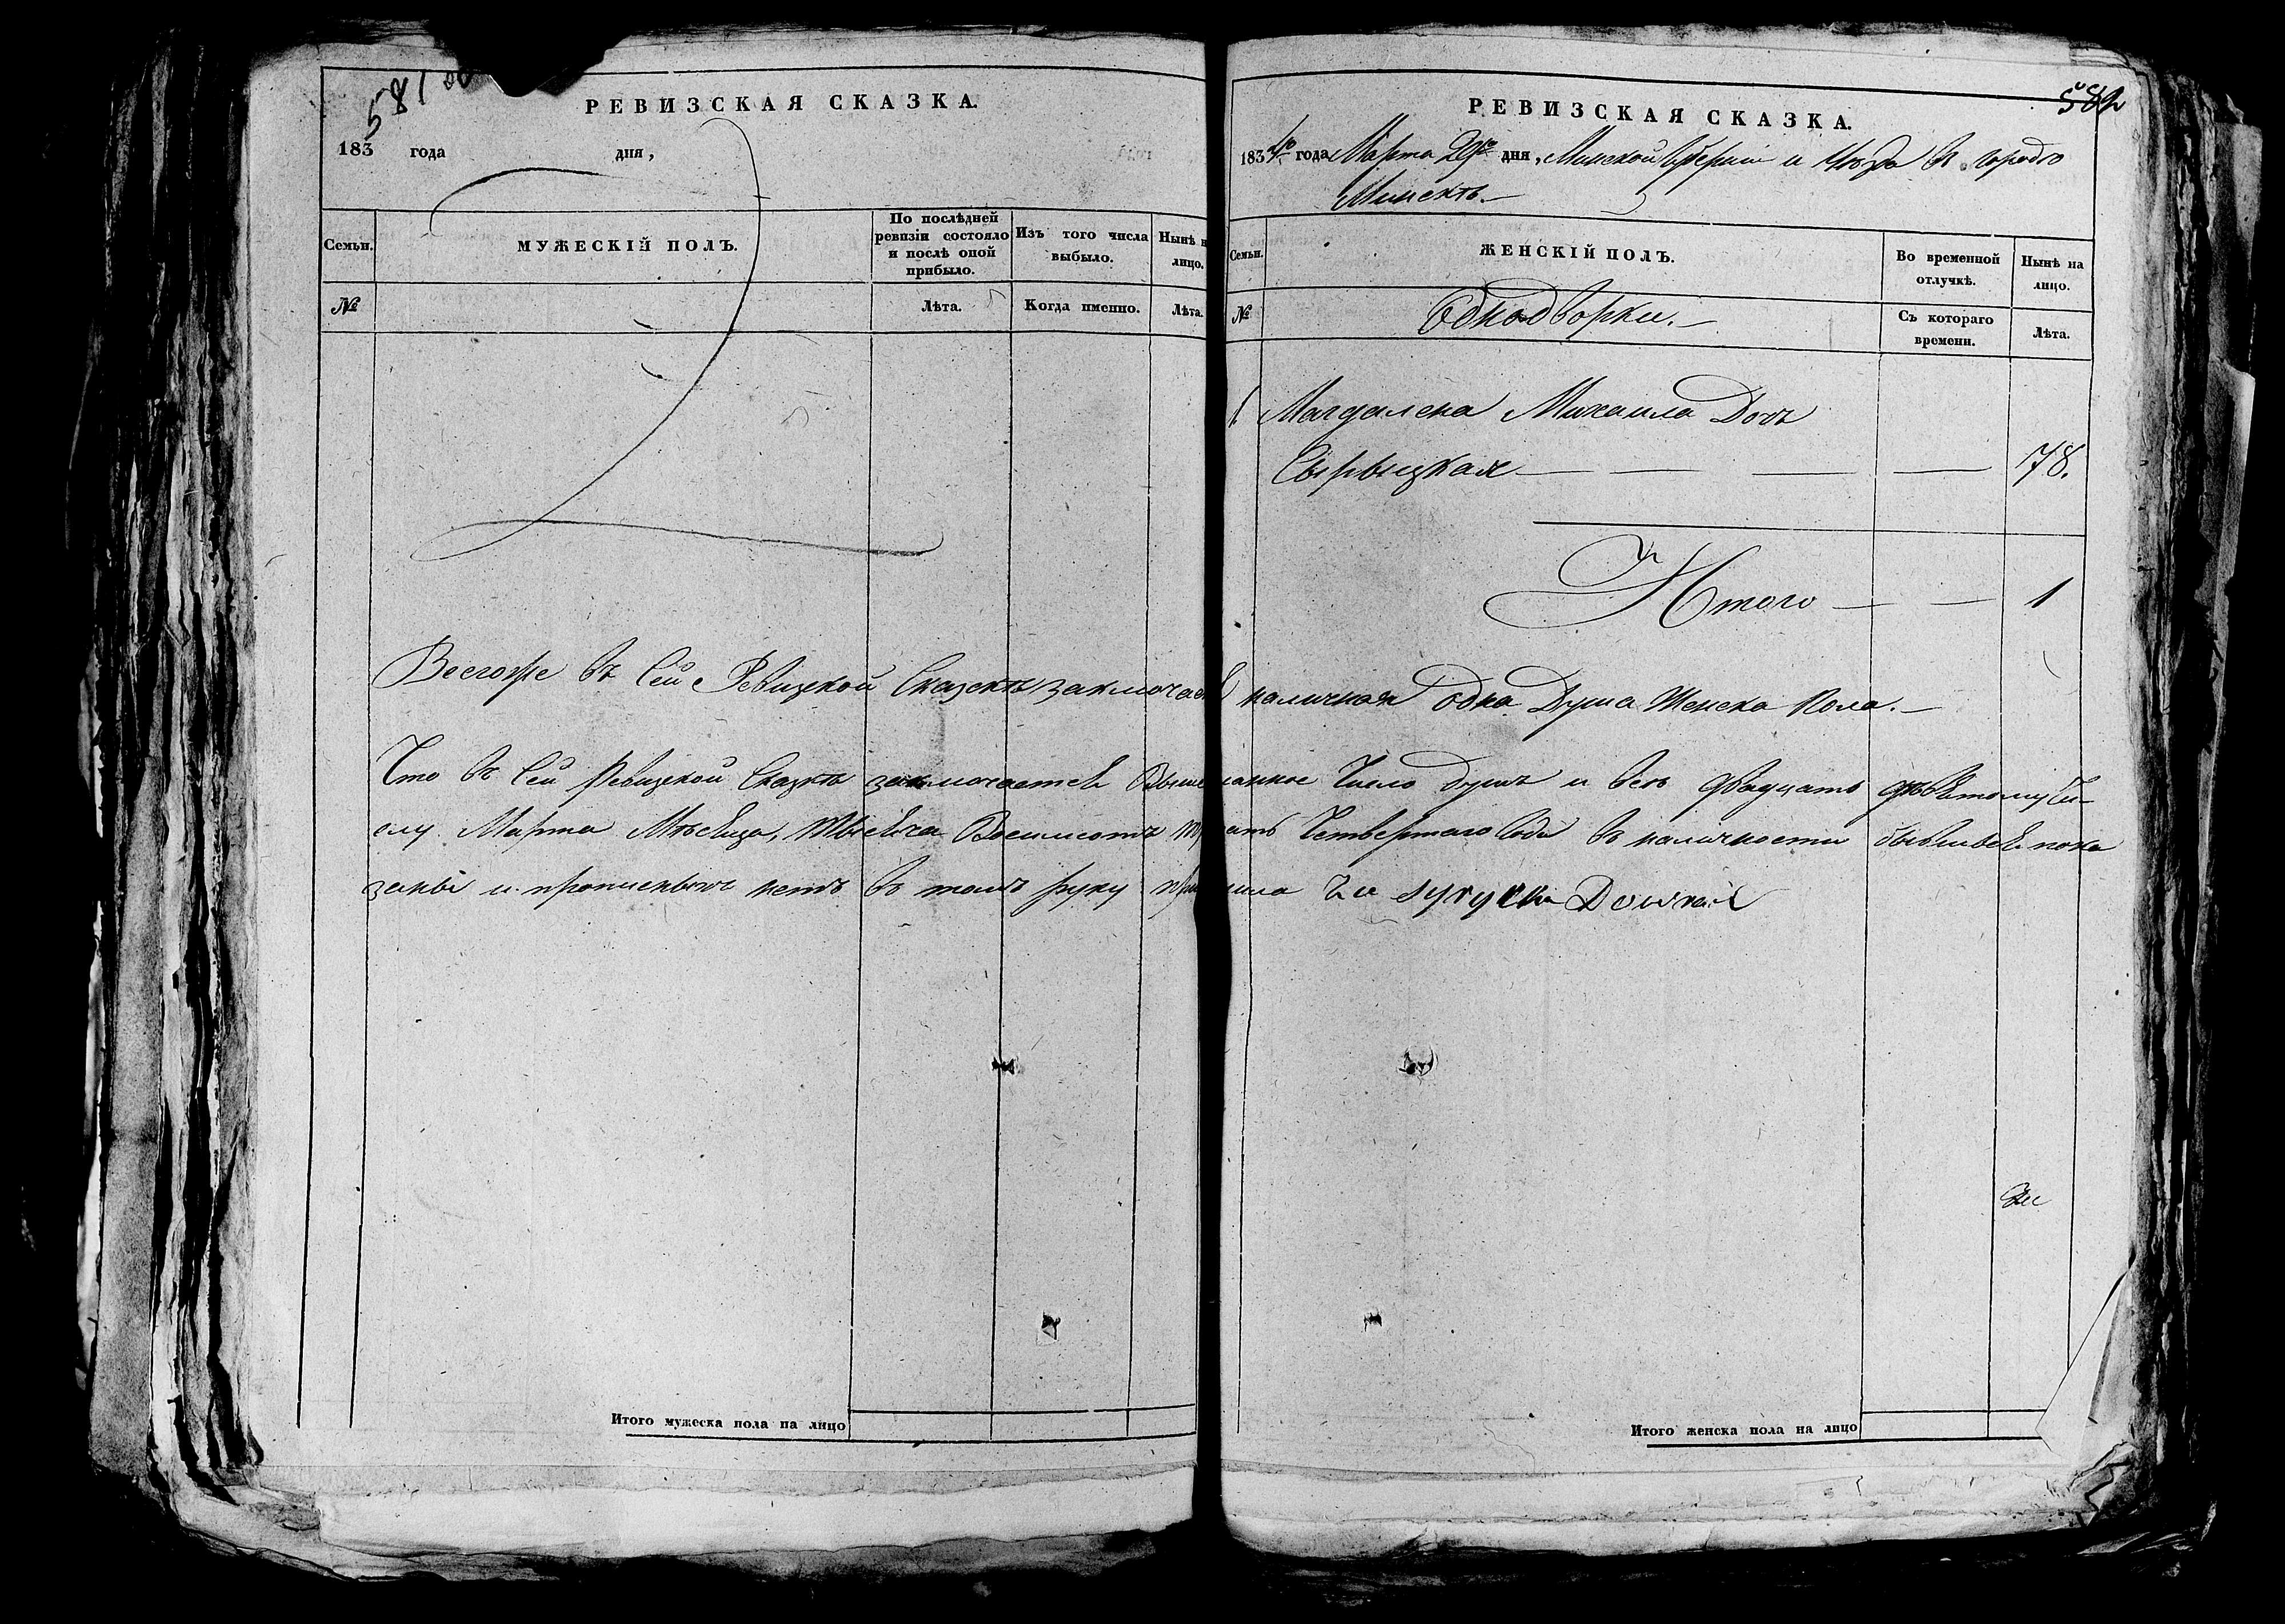 581 об
РЕВИЗСКАЯ СКАЗКА.
183 года дня,
Семьи.
МУЖЕСКІЙ ПОЛЪ.
По послѣдней ревизіи состояло и послѣ оной прибыло.
Изъ того числа выбыло.
Нынѣ н лицо.
№
Лѣта.
Когда именно.
Лѣта.
582
РЕВИЗСКАЯ СКАЗКА.
1834го года Марта 29го дня, Минской Губерніи и Уѣзда въ городѣ
Минскѣ.—
Семьи.
ЖЕНСКІЙ ПОЛЪ.
Во временной отлучкѣ.
Нынѣ на лицо.
№
Однодворки.—
Съ котораго времени.
Лѣта.
1. Магдалена Михаила Дочь
Сырвицкая — — — — — 78.
Итого — — 1
Всегоже въ Сей Ревизкой Сказскѣ заключает наличная одна Душа Женска Пола.—
Что въ Сей Ревизкой Сказкѣ заключается Выше санное Число душъ и всѣ двадцать девятому Чи-
слу Марта Мѣсяца, тысяча Восимсотъ тр ать Четвертого Года въ наличности бывшыя пока
заны и прописныхъ нетъ в томъ руку при ила
Итого мужеска пола на лицо
Итого женска пола на лицо